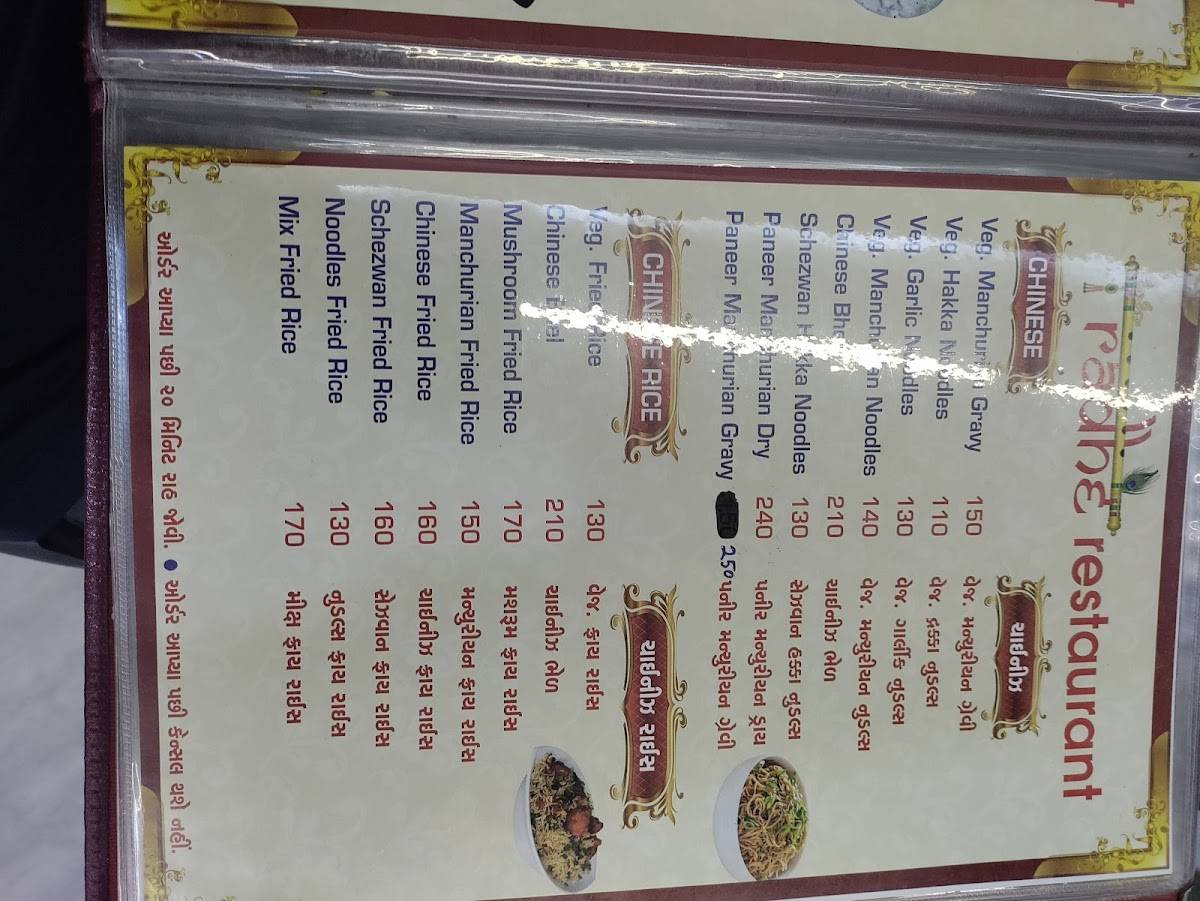 radhe restaurant
CHINESE
ચાઈનીઝ
Veg. Manchurian Gravy 150 વેજ. મન્ચુરીયન ગ્રેવી
Veg. Hakka Noodles 110 વેજ. હક્કા નુડલ્સ
Veg. Garlic Noodles 130 વેજ. ગાર્લીક નુડલ્સ
Veg. Manchurian Noodles 140 વેજ. મન્ચુરીયન નુડલ્સ
Chinese Bhel 210 ચાઈનીઝ ભેળ
Schezwan Hakka Noodles 130 સેઝવાન હક્કા નુડલ્સ
Paneer Manchurian Dry 240 પનીર મન્ચુરીયન ડ્રાય
Paneer Manchurian Gravy 250 પનીર મન્ચુરીયન ગ્રેવી
CHINESE RICE
ચાઈનીઝ રાઈસ
Veg. Fried Rice 130 વેજ. ફ્રાય રાઈસ
Chinese Bhel 210 ચાઈનીઝ ભેળ
Mushroom Fried Rice 170 મશરૂમ ફ્રાય રાઈસ
Manchurian Fried Rice 150 મન્ચુરીયન ફ્રાય રાઈસ
Chinese Fried Rice 160 ચાઈનીઝ ફ્રાય રાઈસ
Schezwan Fried Rice 160 સેઝવાન ફ્રાય રાઈસ
Noodles Fried Rice 130 નુડલ્સ ફ્રાય રાઈસ
Mix Fried Rice 170 મીક્ષ ફ્રાય રાઈસ
ઓર્ડર આપ્યા પછી ૨૦ મિનિટ રાહ જોવી. ● ઓર્ડર આપ્યા પછી કેન્સલ થશે નહીં.